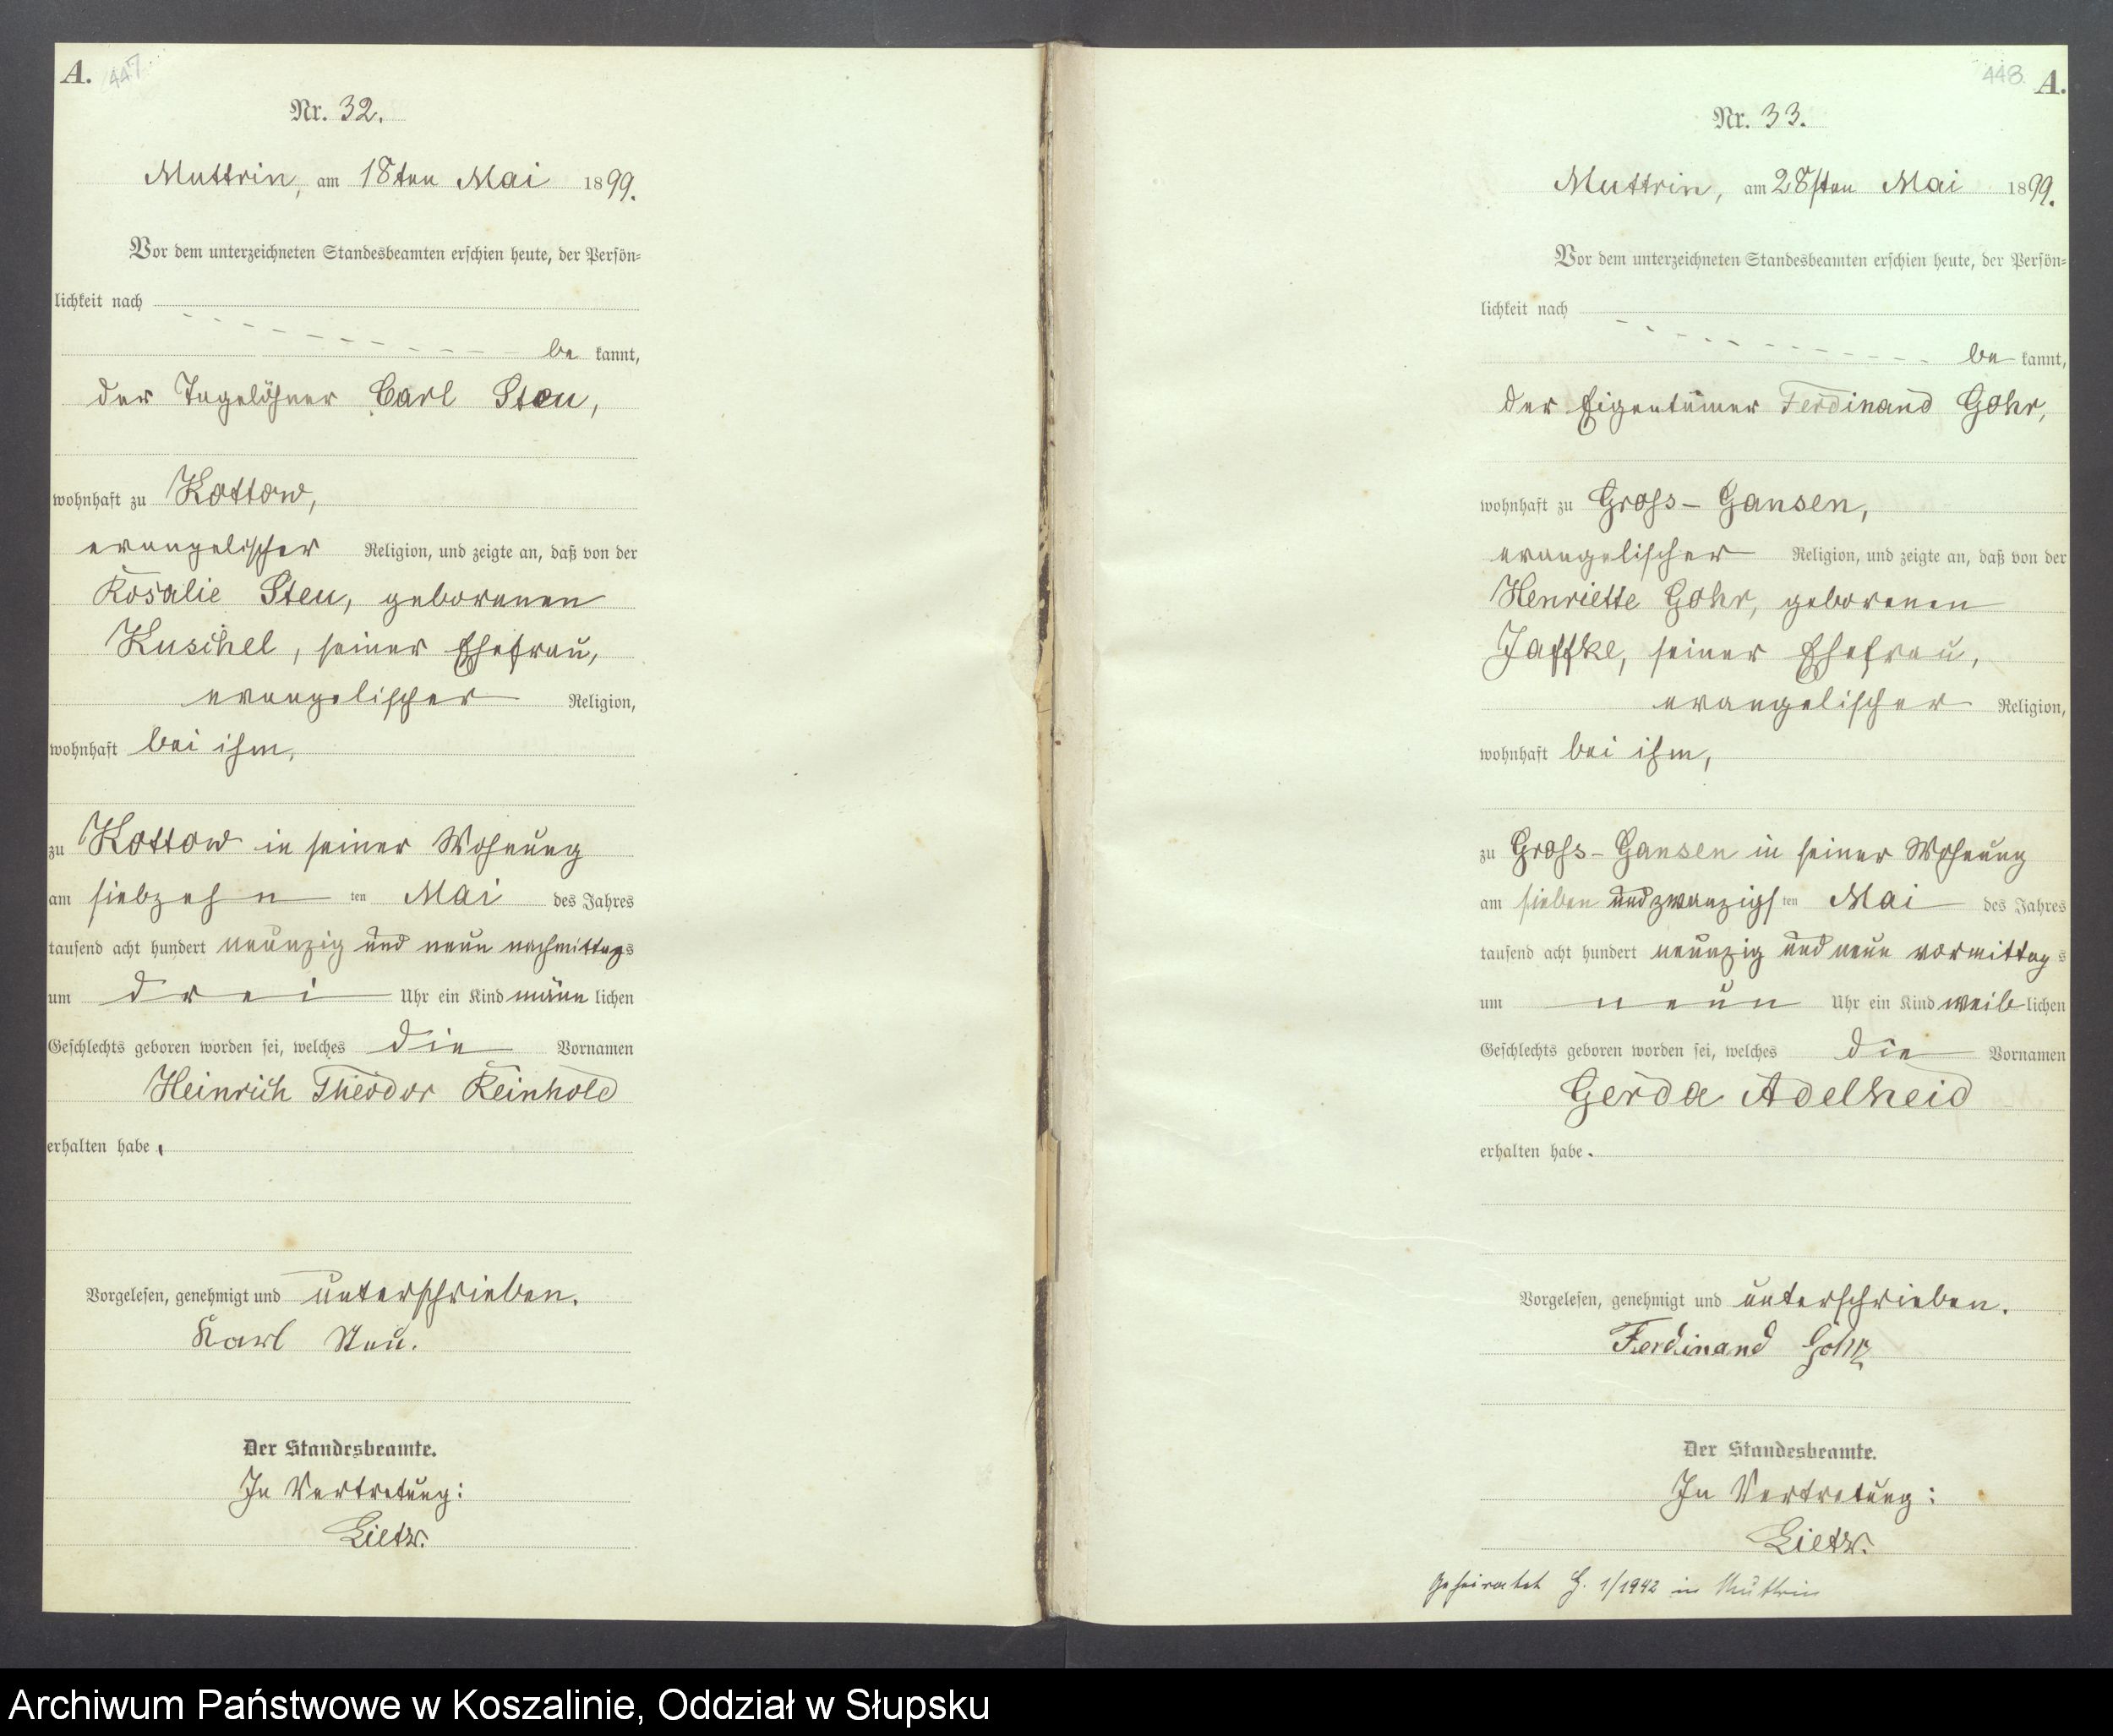 A. 447
Nr. 32.
Muttrin, am 18ten Mai 1899.
Vor dem unterzeichneten Standesbeamten erschien heute, der Persön-
lichkeit nach
be kannt,
der Tagelöhner Carl Steu,
wohnhaft zu Kottow,
evangelischer Religion, und zeigte an, daß von der
Rosalie Steu, geborenen
Kuschel, seiner Ehefrau,
evangelischer Religion,
wohnhaft bei ihm,
zu Kottow in seiner Wohnung
am siebzehn ten Mai des Jahres
tausend acht hundert neunzig und neun nachmittags
um drei Uhr ein Kind männ lichen
Geschlechts geboren worden sei, welches die Vornamen
Heinrich Theodor Reinhold
erhalten habe.
Vorgelesen, genehmigt und unterschrieben.
Karl Steu.
Der Standesbeamte.
In Vertretung:
Lietz.
448. A.
Nr. 33.
Muttrin, am 28sten Mai 1899.
Vor dem unterzeichneten Standesbeamten erschien heute, der Persön-
lichkeit nach
be kannt,
der Eigentümer Ferdinand Gohr,
wohnhaft zu Gross-Gansen,
evangelischer Religion, und zeigte an, daß von der
Henriette Gohr, geborenen
Jaffke, seiner Ehefrau,
evangelischer Religion,
wohnhaft bei ihm,
zu Gross-Gansen in seiner Wohnung
am siebenundzwanzigs ten Mai des Jahres
tausend acht hundert neunzig und neun vormittag s
um neun Uhr ein Kind weib lichen
Geschlechts geboren worden sei, welches die Vornamen
Gerda Adelheid
erhalten habe.
Vorgelesen, genehmigt und unterschrieben.
Ferdinand Gohr
Der Standesbeamte.
In Vertretung:
Lietz.
Geheiratet H. 1/1942 in Muttrin
Archiwum Państwowe w Koszalinie, Oddział w Słupsku